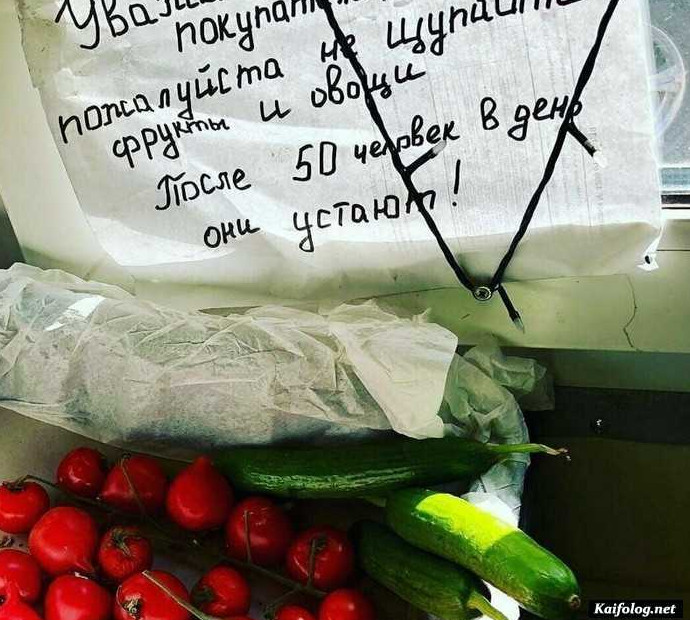 покупат
пожалуйста не щупайте
фрукты и овощи
После 50 человек в день
они устают!
Kaifolog.net